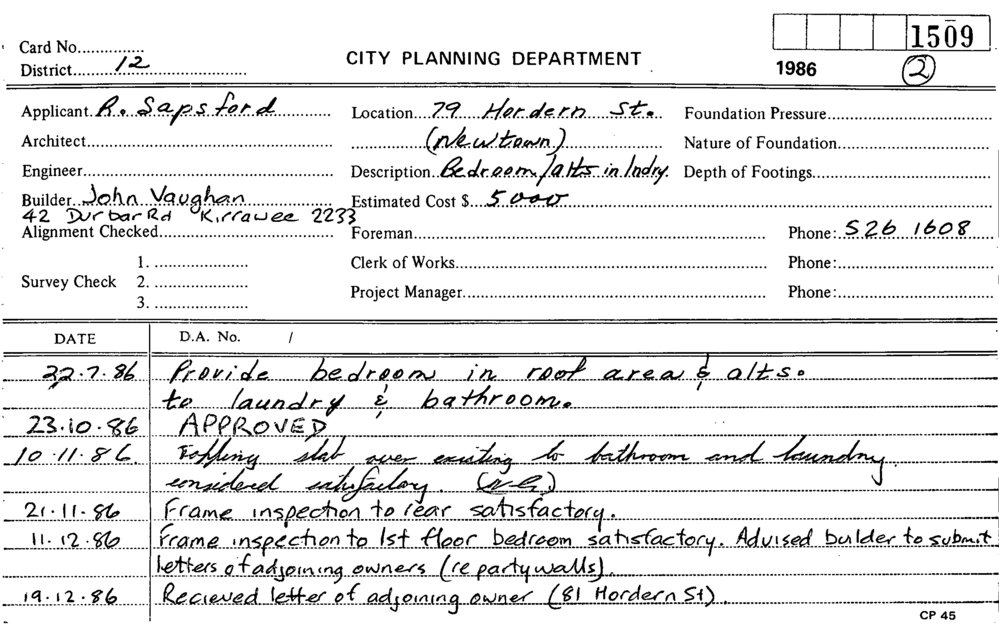 1509
Card No...............
CITY PLANNING DEPARTMENT
District...12...
1986
2
Applicant R. Sapsford
Location 79 Hordern St.
Foundation Pressure
Architect
(Newtown)
Nature of Foundation
Engineer
Description Bedroom/alts in lndry.
Depth of Footings
Builder John Vaughan
Estimated Cost $ 5000
42 Durbar Rd Kirrawee 2233
Alignment Checked
Foreman
Phone: 526 1608
Survey Check
1.
2.
3.
Clerk of Works
Phone:
Project Manager
Phone:
DATE
D.A. No. /
22.7.86 Provide bedroom in roof area & alts.
to laundry & bathroom.
23.10.86 APPROVED
10.11.86. Topping slab over existing to bathroom and laundry
considered satisfactory.
21.11.86 Frame inspection to rear satisfactory.
11.12.86 Frame inspection to 1st floor bedroom satisfactory. Advised builder to submit
letters of adjoining owners (re party walls)
19.12.86 Recieved letter of adjoining owner (81 Hordern St).
CP 45